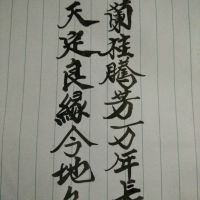 蘭桂騰芳万年長
天定良縁今地久